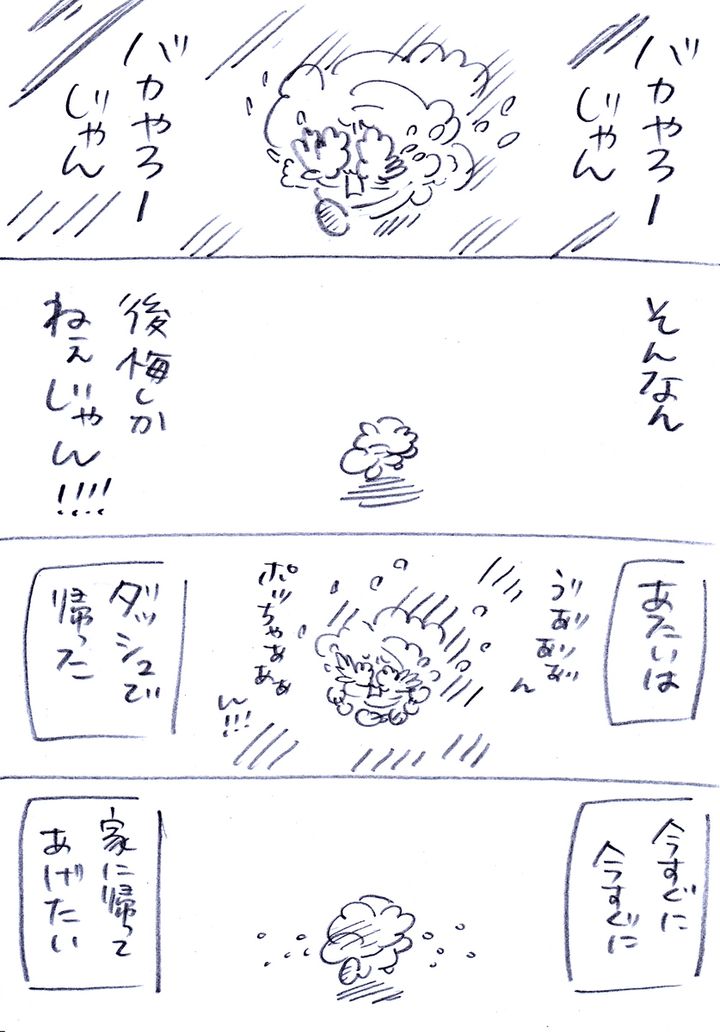 バカやろー
じゃん
バカやろー
じゃん
そんなん
後悔しか
ねぇじゃん!!!!
あたいは
ゔあ゙あ゙あ゙
ん
ポッちゃぁあぁ
ん!!!
ダッシュで
帰った
今すぐに
今すぐに
家に帰って
あげたい